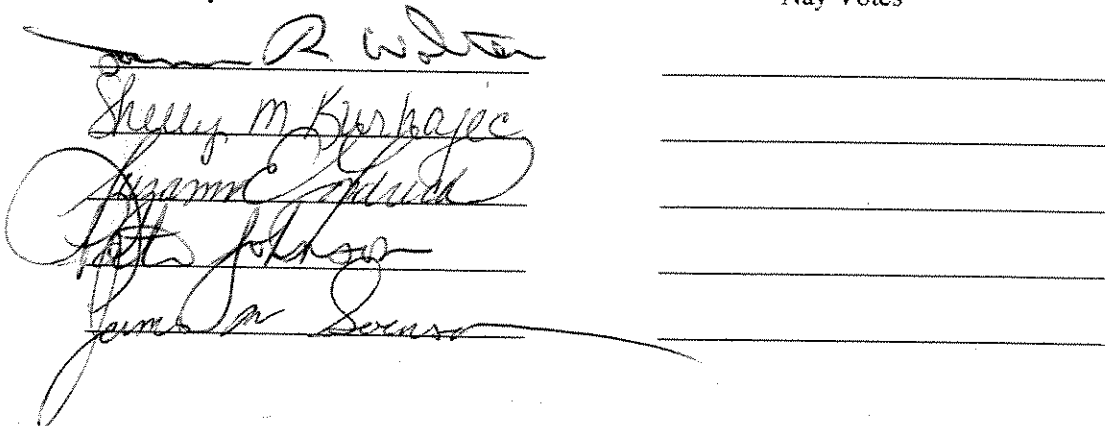 Nay Votes
R. Walter
Shelly M Kurhajec
Suzanne
Johnson
James M Swenson